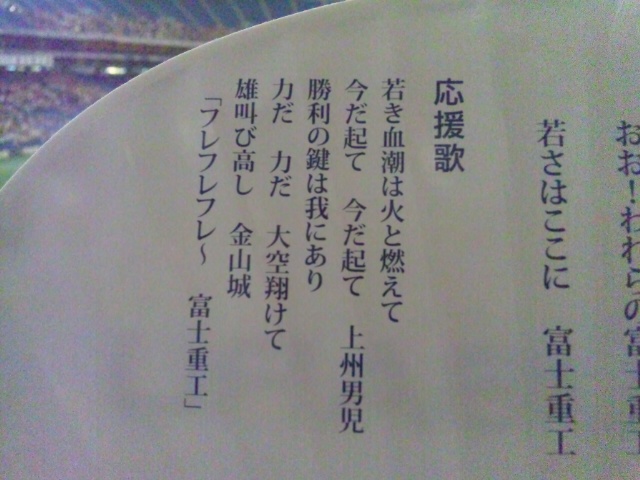 おお!われらの富士重工
若さはここに　富士重工
応援歌
若き血潮は火と燃えて
今だ起て　今だ起て　上州男児
勝利の鍵は我にあり
力だ　力だ　大空翔けて
雄叫び高し　金山城
「フレフレフレ〜　富士重工」